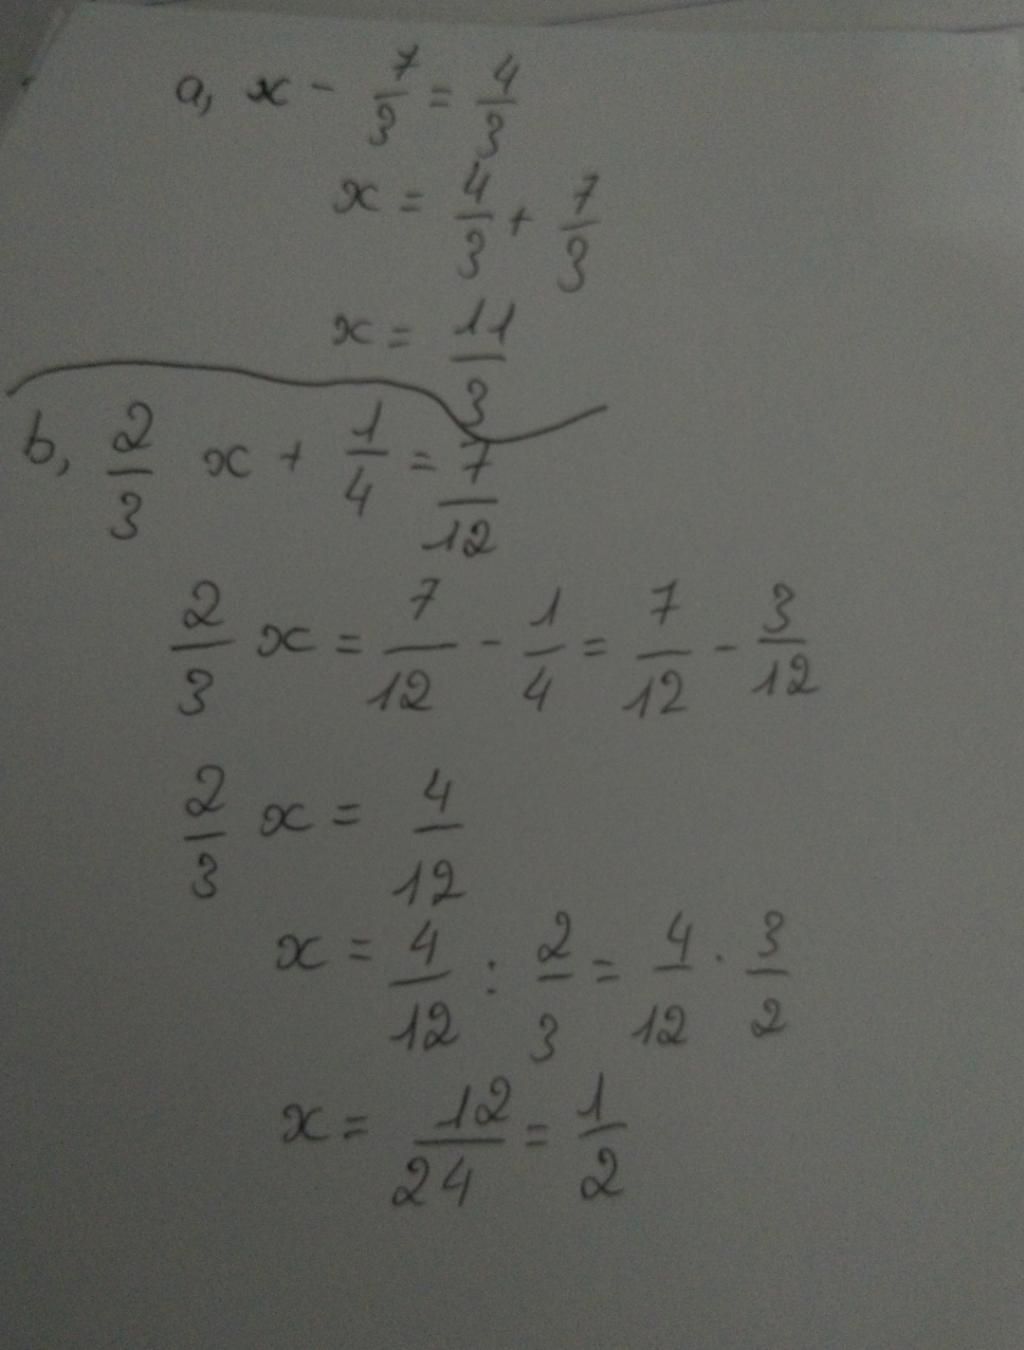 a, x - 7/3 = 4/3
x = 4/3 + 7/3
x = 11/3
b, 2/3 x + 1/4 = 7/12
2/3 x = 7/12 - 1/4 = 7/12 - 3/12
2/3 x = 4/12
x = 4/12 : 2/3 = 4/12 . 3/2
x = 12/24 = 1/2